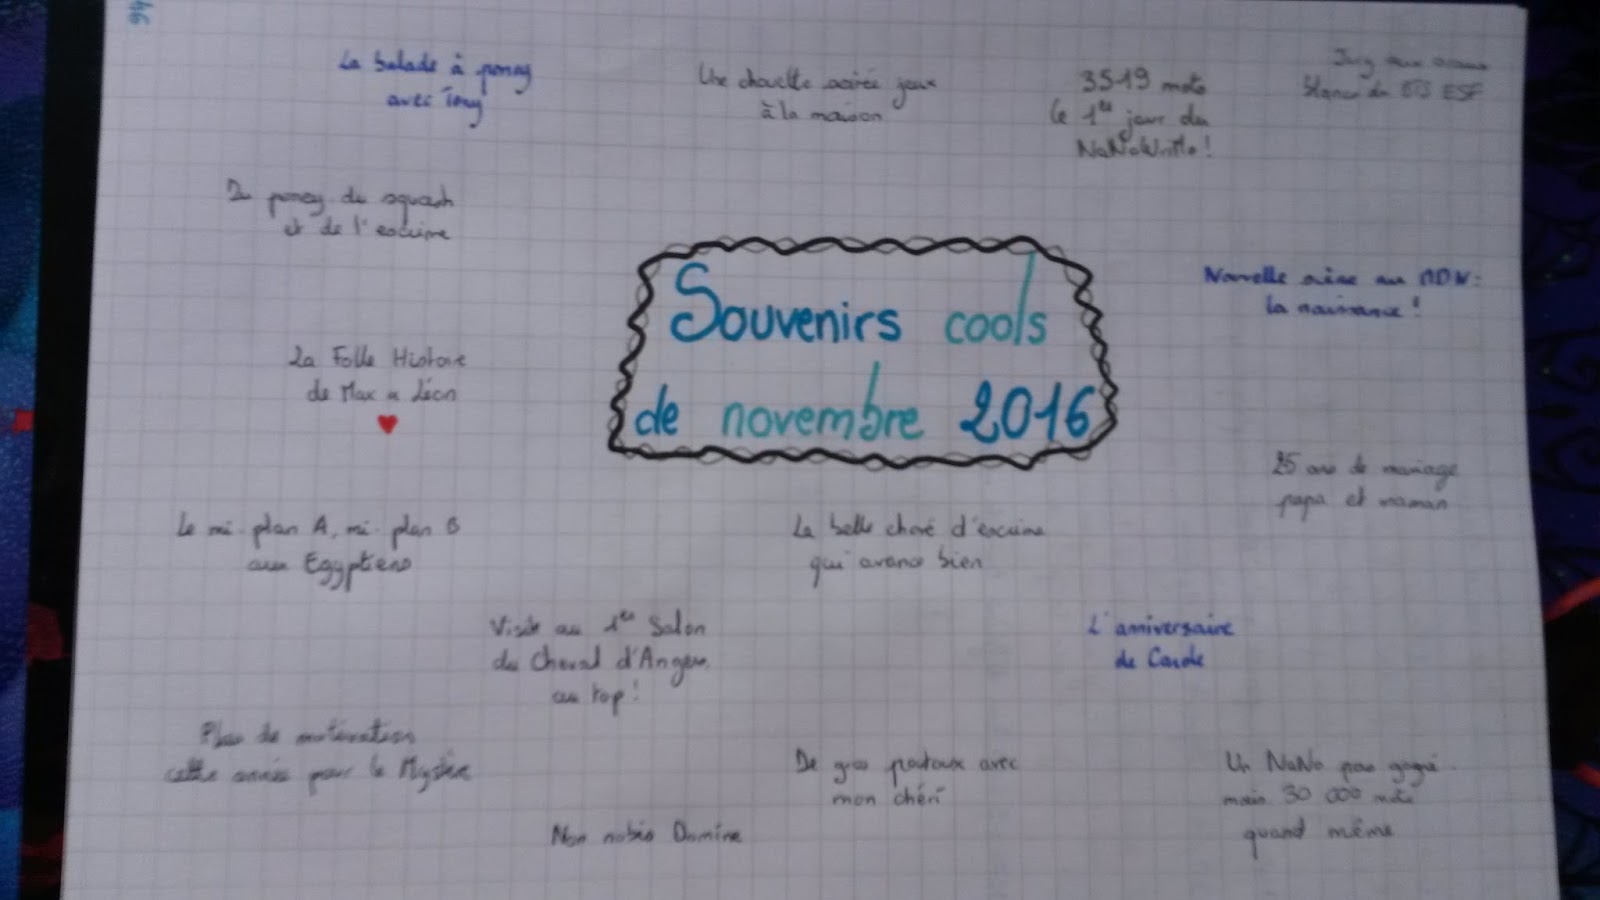 46
La balade à poney
avec Tony
Une chouette soirée jeux
à la maison
3519 mots
le 1er jour du
NaNoWriMo !
Jury aux
blancs du BTS ESF
Du poney du squash
et de l'escrime
Souvenirs cools
de novembre 2016
Nouvelle scène au MDN :
la naissance !
La Folle Histoire
de Max et Léon
♥
25 ans de mariage
papa et maman
Le mi-plan A, mi-plan B
aux Egyptiens
La belle choré d'escrime
qui avance bien
Visite au 1er Salon
du Cheval d'Angers,
au top !
L'anniversaire
de Carole
Plus de motivation
cette année pour le Mystère
De gros poutoux avec
mon chéri
Un NaNo pas gagné
mais 30 000 mots
quand même
Non nobis Domine